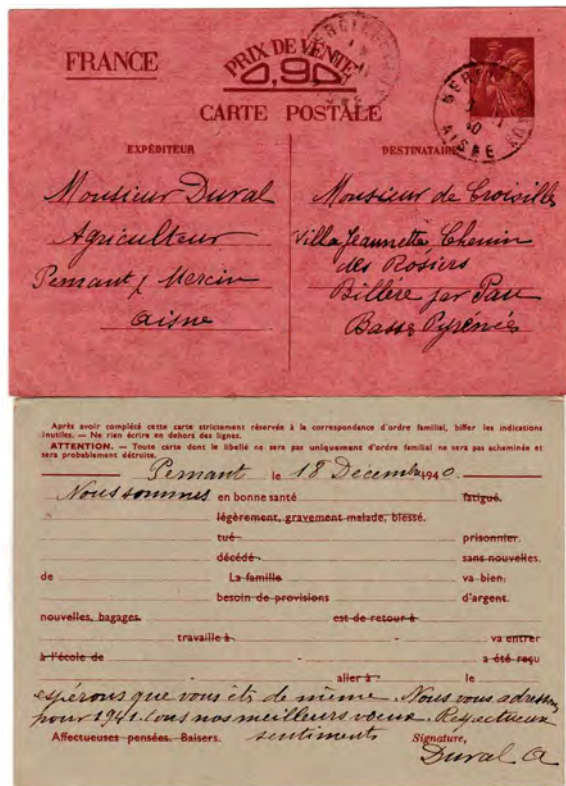 FRANCE
PRIX DE VENTE
0,90
CARTE POSTALE
EXPÉDITEUR
DESTINATAIRE
AISNE
Monsieur Duval
Agriculteur
Pernant / Mercin
Aisne
Monsieur de Croisilles
Villa Jeannette Chemin
des Rosiers
Billère par Pau
Basses Pyrénées
Après avoir complété cette carte strictement réservée à la correspondance d'ordre familial, biffer les indications
inutiles. — Ne rien écrire en dehors des lignes.
ATTENTION. — Toute carte dont le libellé ne sera pas uniquement d'ordre familial ne sera pas acheminée et
sera probablement détruite.
Pernant le 18 Décembre 1940.
Nous sommes en bonne santé fatigué.
légèrement, gravement malade, blessé.
tué prisonnier.
décédé sans nouvelles.
de La famille va bien.
besoin de provisions d'argent.
nouvelles, bagages. est de retour à
travaille à va entrer
à l'école de a été reçu
aller à le
espérons que vous êts de même. Nous vous adressons
pour 1941 tous nos meilleurs vœux. Respectueux
Affectueuses pensées. Baisers. sentiments Signature,
Duval A